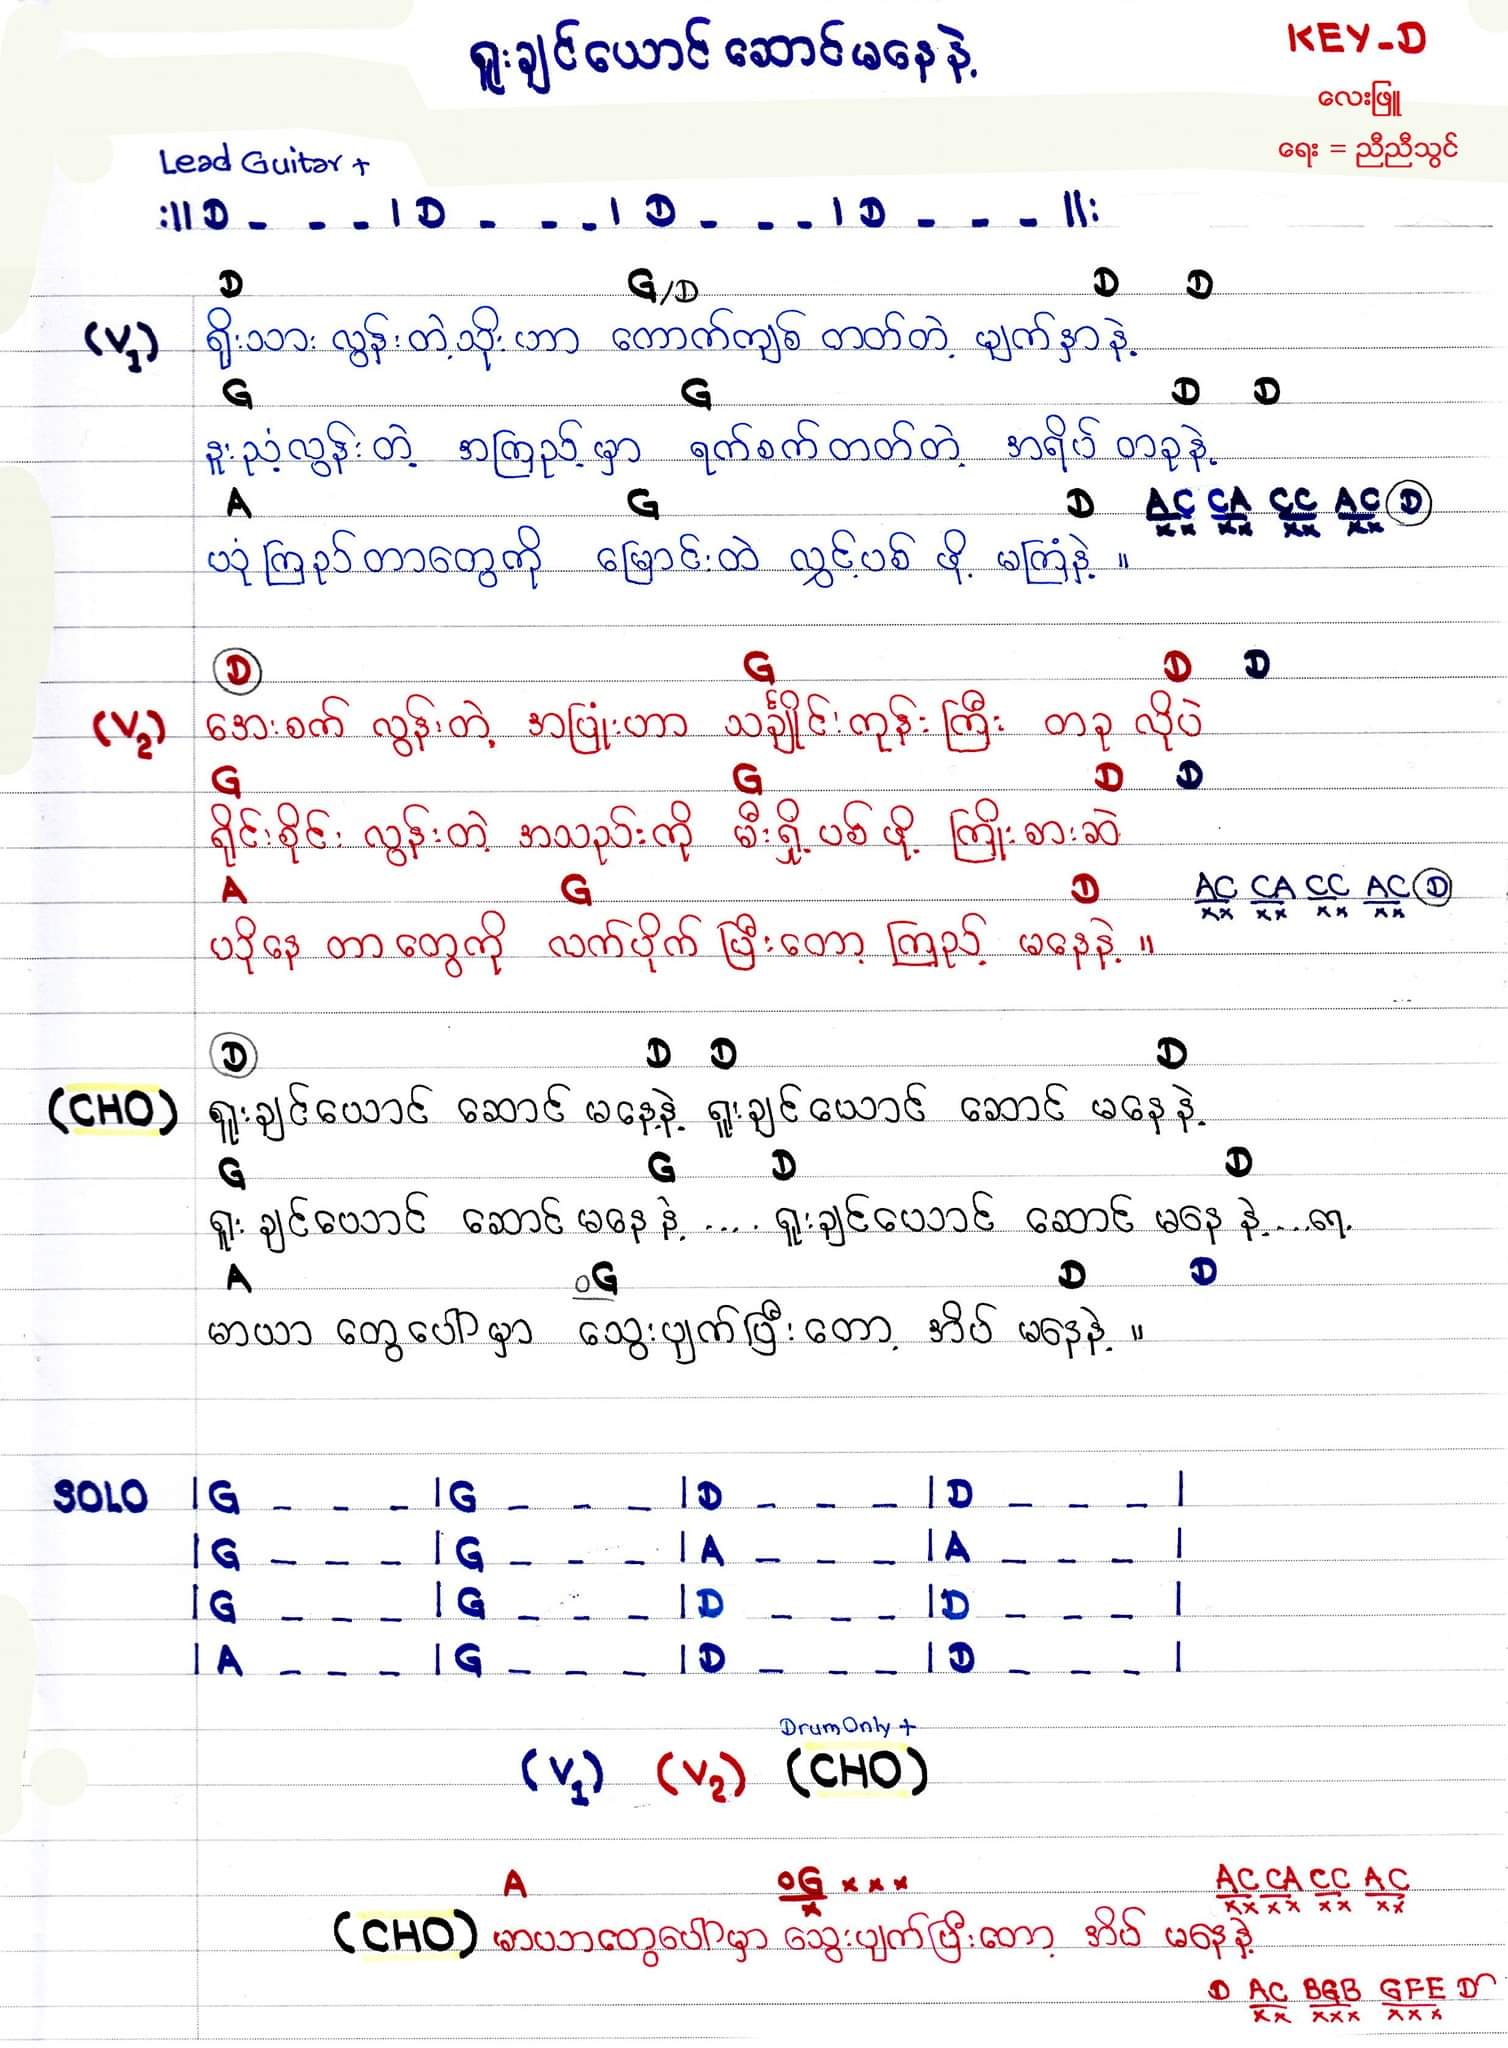 ရူးချင်ယောင်ဆောင်မနေနဲ့
KEY-D
လေးဖြူ
ရေး = ညီညီသွင်
Lead Guitar +
:|| D - - - | D - - - | D - - - | D - - - ||:
D G/D D D
(V1) ရိုးသားလွန်းတဲ့သိုးဟာ ကောက်ကျစ်တတ်တဲ့ မျက်နှာနဲ့
G G D D
နူးညံ့လွန်းတဲ့ အကြည့်မှာ ရက်စက်တတ်တဲ့ အရိပ်တခုနဲ့
A G D AC CA CC AC D
xx xx xx xx
ယုံကြည်တာတွေကို မြောင်းထဲ လွှင့်ပစ်ဖို့ မကြံနဲ့ ။
D G D D
(V2) အေးစက်လွန်းတဲ့ အပြုံးဟာ သင်္ချိုင်းကုန်းကြီး တခုလိုပဲ
G G D D
ရိုင်းစိုင်းလွန်းတဲ့ အသည်းကို မီးရှို့ပစ်ဖို့ ကြိုးစားဆဲ
A G D AC CA CC AC D
xx xx xx xx
ပိုနေတာတွေကို လက်ပိုက်ပြီးတော့ ကြည့်မနေနဲ့ ။
D D D D
(CHO) ရူးချင်ယောင် ဆောင်မနေနဲ့ ရူးချင်ယောင် ဆောင်မနေနဲ့
G G D D
ရူးချင်ယောင် ဆောင်မနေနဲ့ .... ရူးချင်ယောင် ဆောင်မနေနဲ့ ...ရေ့
A oG D D
မာယာတွေပေါ်မှာ သွေးပျက်ပြီးတော့ အိပ်မနေနဲ့ ။
SOLO | G - - - | G - - - | D - - - | D - - - |
| G - - - | G - - - | A - - - | A - - - |
| G - - - | G - - - | D - - - | D - - - |
| A - - - | G - - - | D - - - | D - - - |
Drum Only +
(V1) (V2) (CHO)
A oG x x x AC CA CC AC
x xx xx xx xx
(CHO) မာယာတွေပေါ်မှာ သွေးပျက်ပြီးတော့ အိပ်မနေနဲ့
D AC BGB GFE D
xx xxx xxx